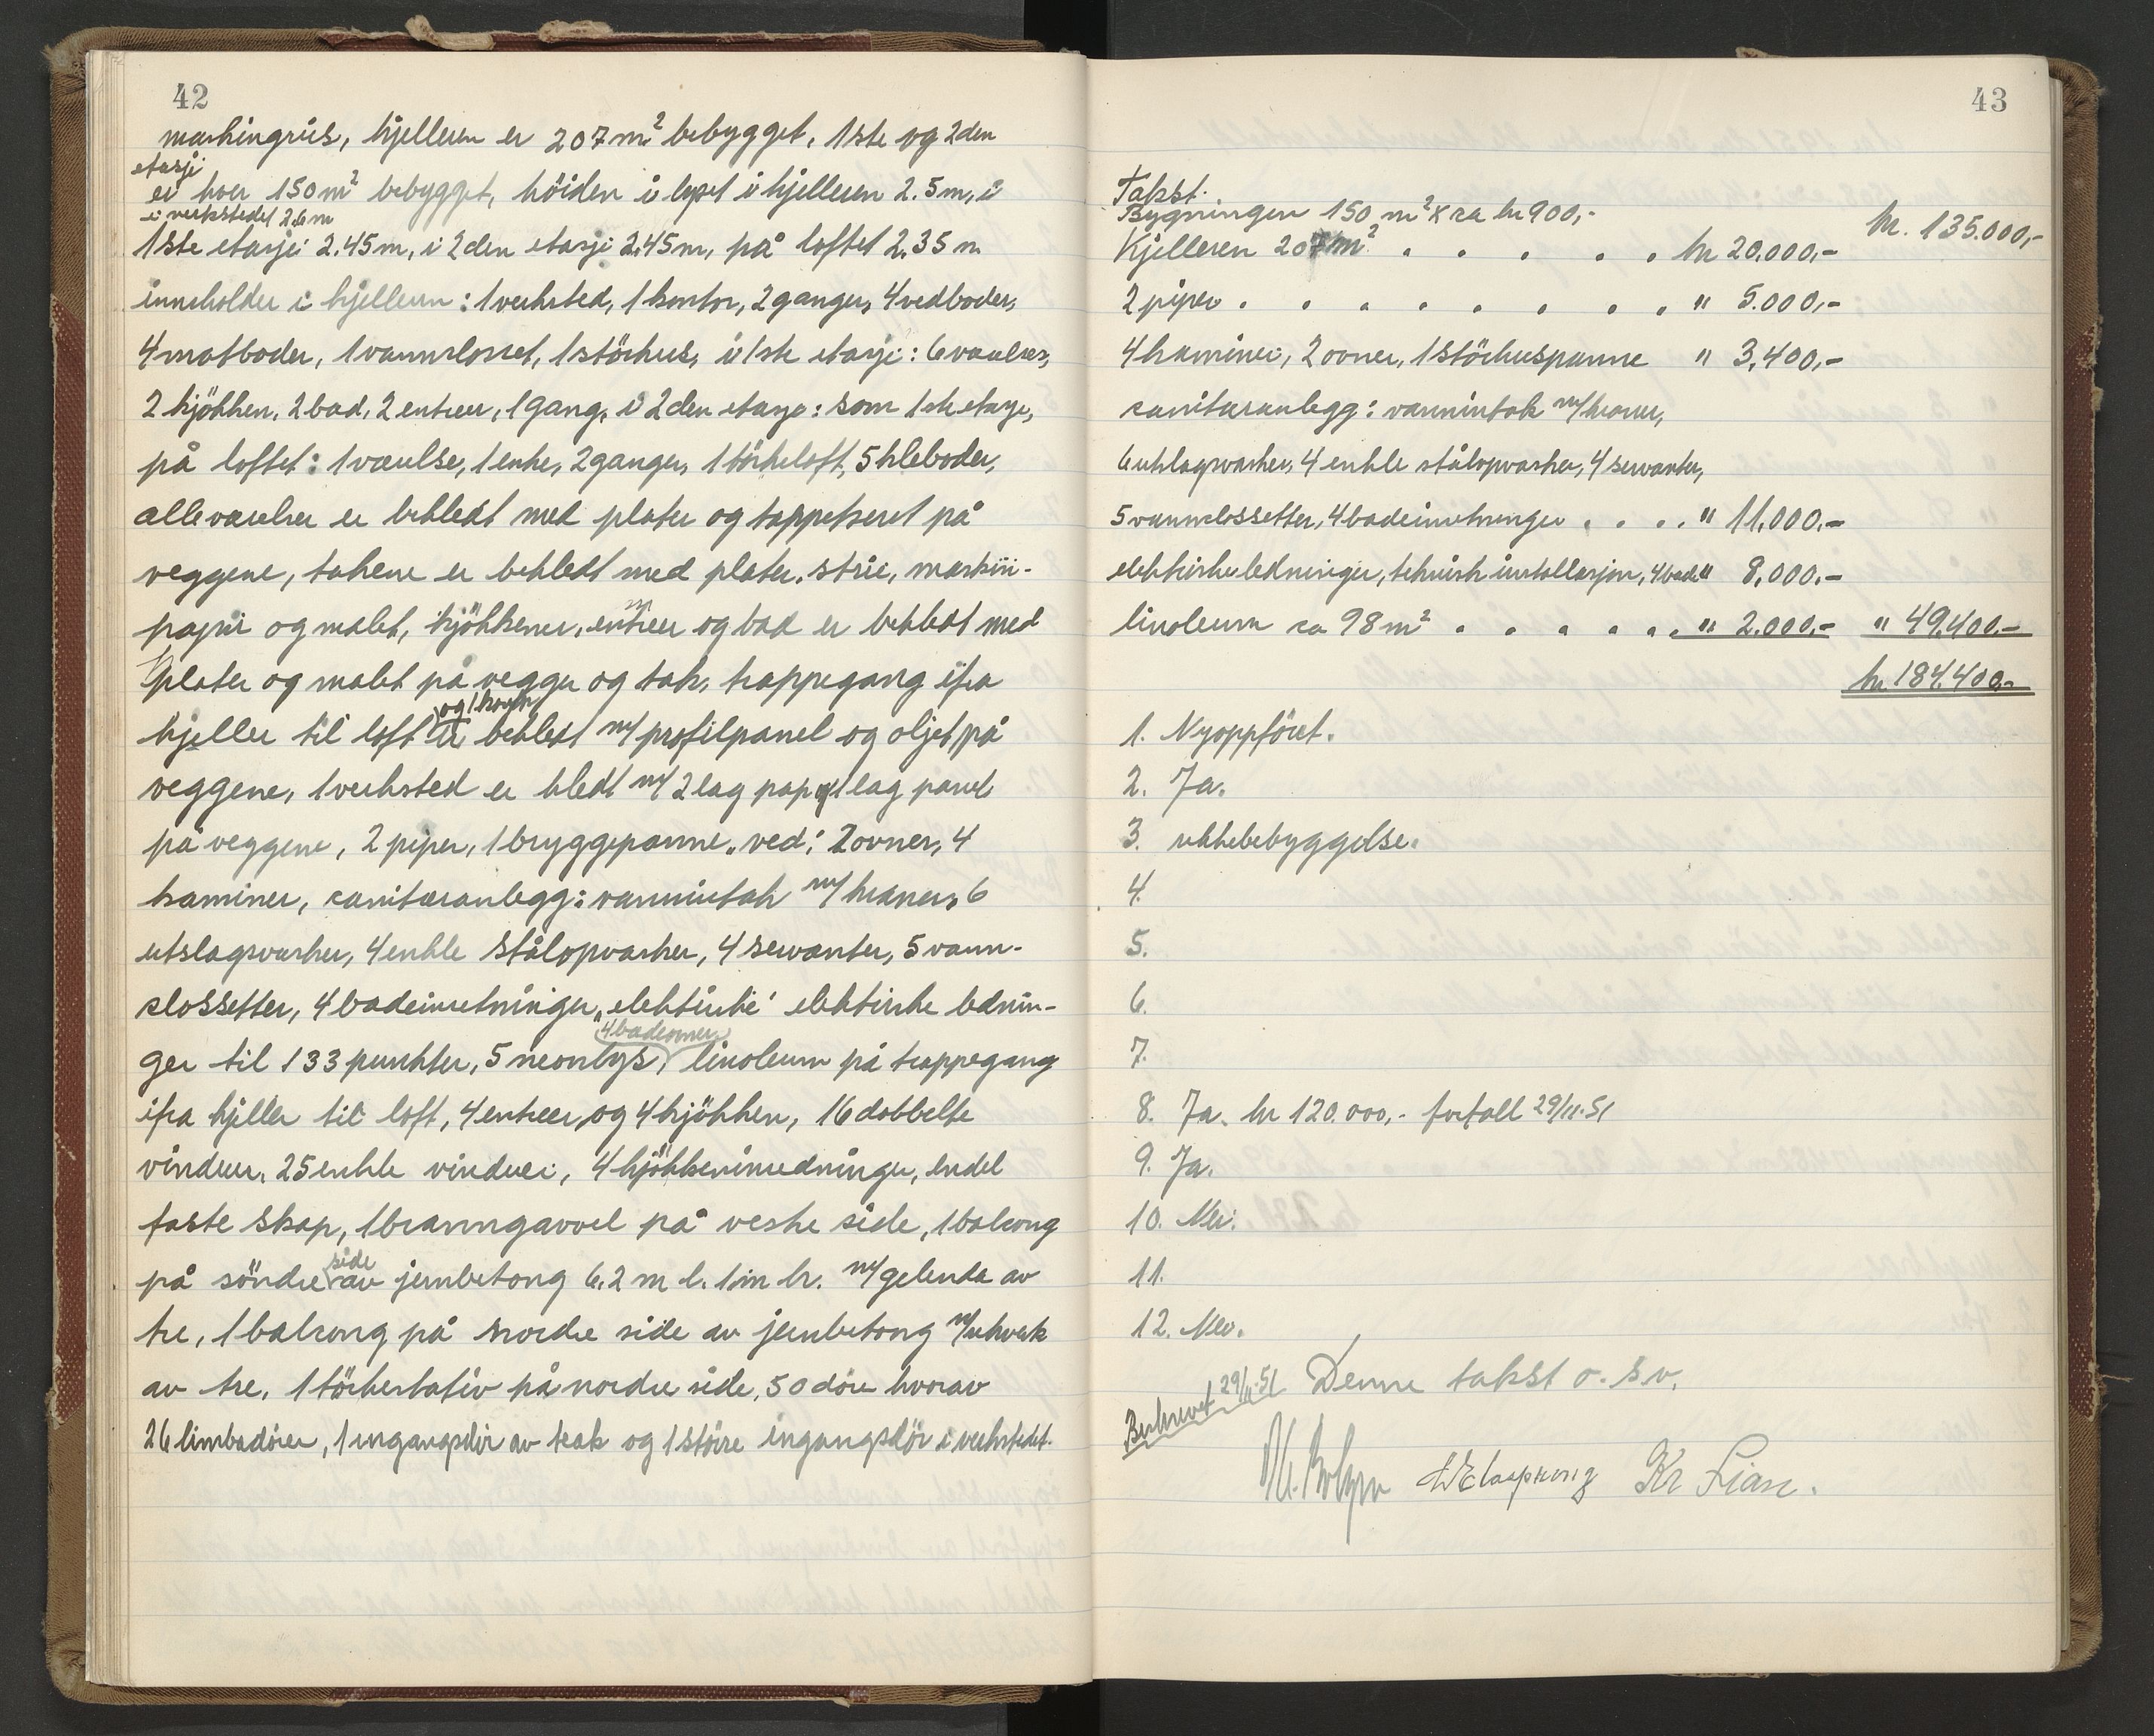 42
maskingrus, kjelleren er 207 m² bebygget, 1ste og 2den
etasje
er hver 150 m² bebygget, höiden i lyset i kjelleren 2.5 m, i
i verkstedet 2.6 m
1ste etasje 2.45 m, i 2den etasje 2.45 m, på loftet 2.35 m
inneholder i kjelleren: 1 verksted, 1 kontor, 2 ganger, 4 vedboder,
4 matboder, 1 vannclosset, 1 störhus, i 1ste etasje: 6 værelser,
2 kjökken, 2 bad, 2 entreer, 1 gang, i 2den etasje: som 1ste etasje,
på loftet: 1 værelse, 1 entre, 2 ganger, 1 törkeloft, 5 kleboder,
alle værelser er bekledt med plater og tappetseret på
veggene, takene er bekledt med plater, strie, maskin-
papir og malet, kjökkener, entreer og bad er bekledt med
plater og malet på vegger og tak, trappegang ifra
kjeller til loft er bekledt m/ profilpanel og oljet på
veggene, 1 verksted er kledt m/ 2 lag pap og 1 lag panel
på veggene, 2 piper, 1 bryggepanne „ved", 2 ovner, 4
kaminer, sanitæranlegg: vanninntak m/ kraner, 6
utslagsvasker, 4 enkle stålopvasker, 4 servanter, 5 vann-
clossetter, 4 badeinretninger „elektriske" elektriske lednin-
4 badeovner
ger til 133 punkter, 5 neonlys, linoleum på trappegang
ifra kjeller til loft, 4 entreer, og 4 kjökken, 16 dobbelte
vinduer, 25 enkle vinduer, 4 kjökkeninredninger, endel
faste skap, 1 branngavvel på vestre side, 1 balcong
side
på söndre av jernbetong 6.2 m l. 1 m br. m/ gelender av
tre, 1 balcong på nordre side av jernbetong m/ rekverk
av tre, 1 törkestativ på nordre side, 50 döre hvorav
26 limbadörer, 1 ingangsdör av teak og 1 större ingangsdör i verkstedet.
43
Takst.
Bygningen 150 m² x ca kr 900,- kr. 135.000,-
Kjelleren 207 m² . . . . . kr 20.000,-
2 piper . . . . . . . . " 5.000,-
4 kaminer, 2 ovner, 1 störhuspanne " 3,400,-
sanitæranlegg: vanninntak m/ kraner,
6 utslagsvasker, 4 enkle stålopvasker, 4 servanter,
5 vannclossetter, 4 badeinretninger . . . . " 11,000.-
elektriske ledninger, teknisk installasjon, 4 bade " 8,000.-
linoleum ca 98 m² . . . . . . " 2.000.- " 49.400.-
kr 184.400.-
1. Nyoppföret.
2. Ja.
3. rekkebebyggelse.
4.
5.
6.
7.
8. Ja. kr 120.000,- forfall 29/11-51
9. Ja.
10. Nei.
11.
12. Nei.
Denne takst o. s. v.
Beskrevet 29/11-51
Kr Lian.